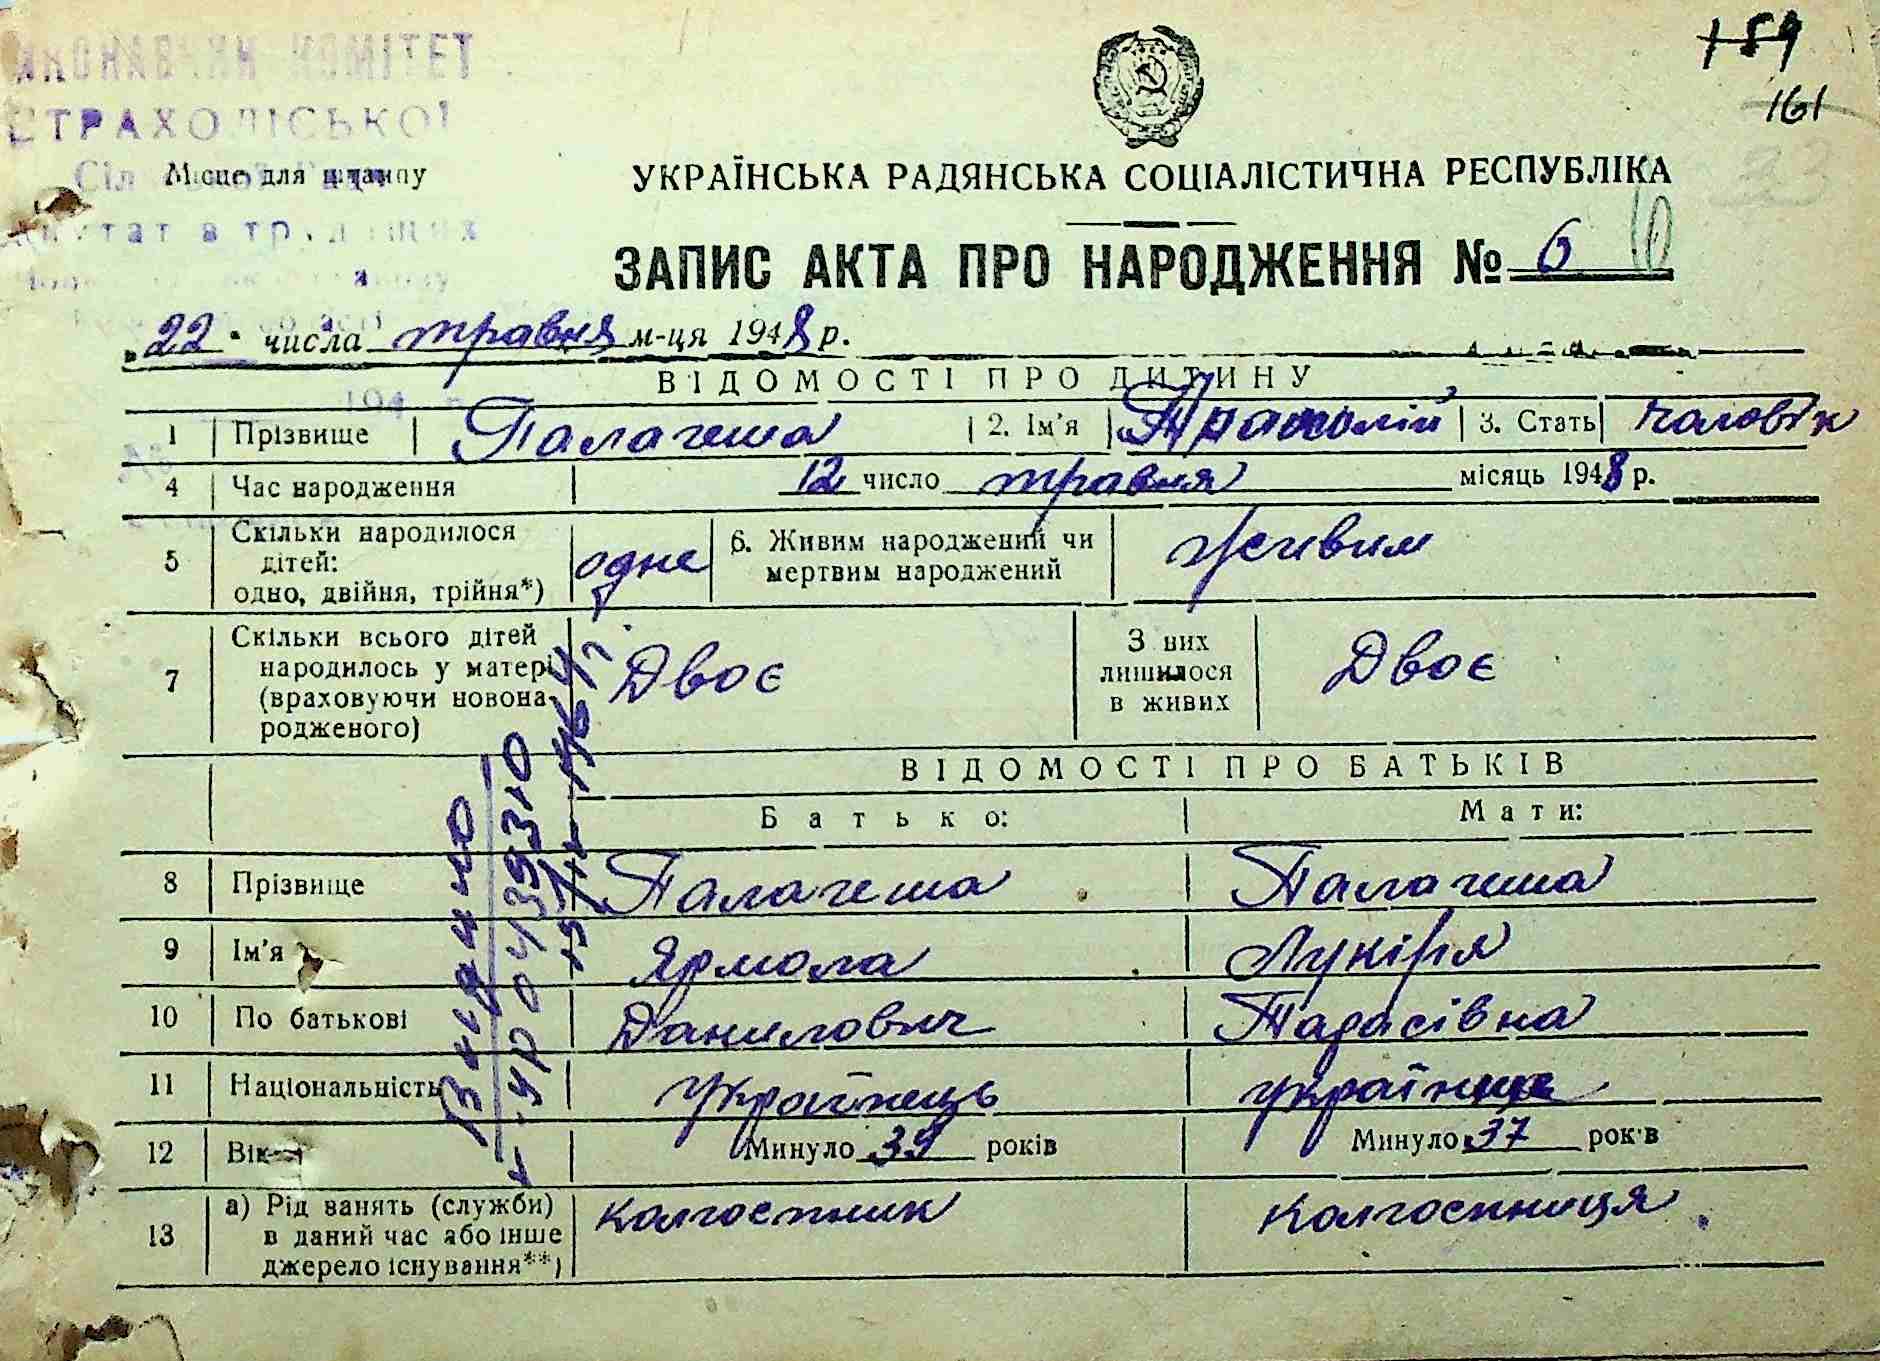 159
161
33
ВИКОНАВЧИЙ КОМІТЕТ
СТРАХОЛІСЬКОЇ
Місце для штампу
УКРАЇНСЬКА РАДЯНСЬКА СОЦІАЛІСТИЧНА РЕСПУБЛІКА
ЗАПИС АКТА ПРО НАРОДЖЕННЯ № 6
„22" числа травня м-ця 1948 р.
ВІДОМОСТІ ПРО ДИТИНУ
1 Прізвище Палагеша 2. Ім'я 3. Стать чоловік
4 Час народження 12 число травня місяць 1948 р.
5 Скільки народилося дітей: одно, двійня, трійня*) одне 6. Живим народжений чи мертвим народжений Живим
7 Скільки всього дітей народилось у матері (враховуючи новонародженого) Двоє З них лишилося в живих Двоє
ВІДОМОСТІ ПРО БАТЬКІВ
Батько: Мати:
8 Прізвище Палагеша Палагеша
9 Ім'я Ярмола Лукіря
10 По батькові Данилович Тадасівна
11 Національність Українець українка
12 Вік Минуло 39 років Минуло 37 років
13 а) Рід занять (служби) в даний час або інше джерело існування**) колгоспник колгоспниця